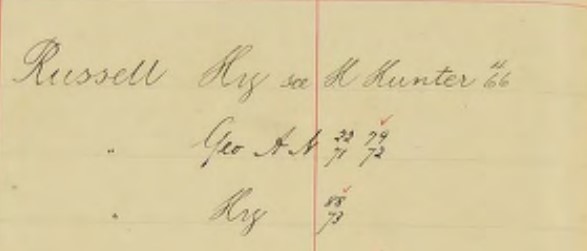 Russell Hry see H Hunter "/66
" Geo A N 22/71 79/72
" Hry 88/73